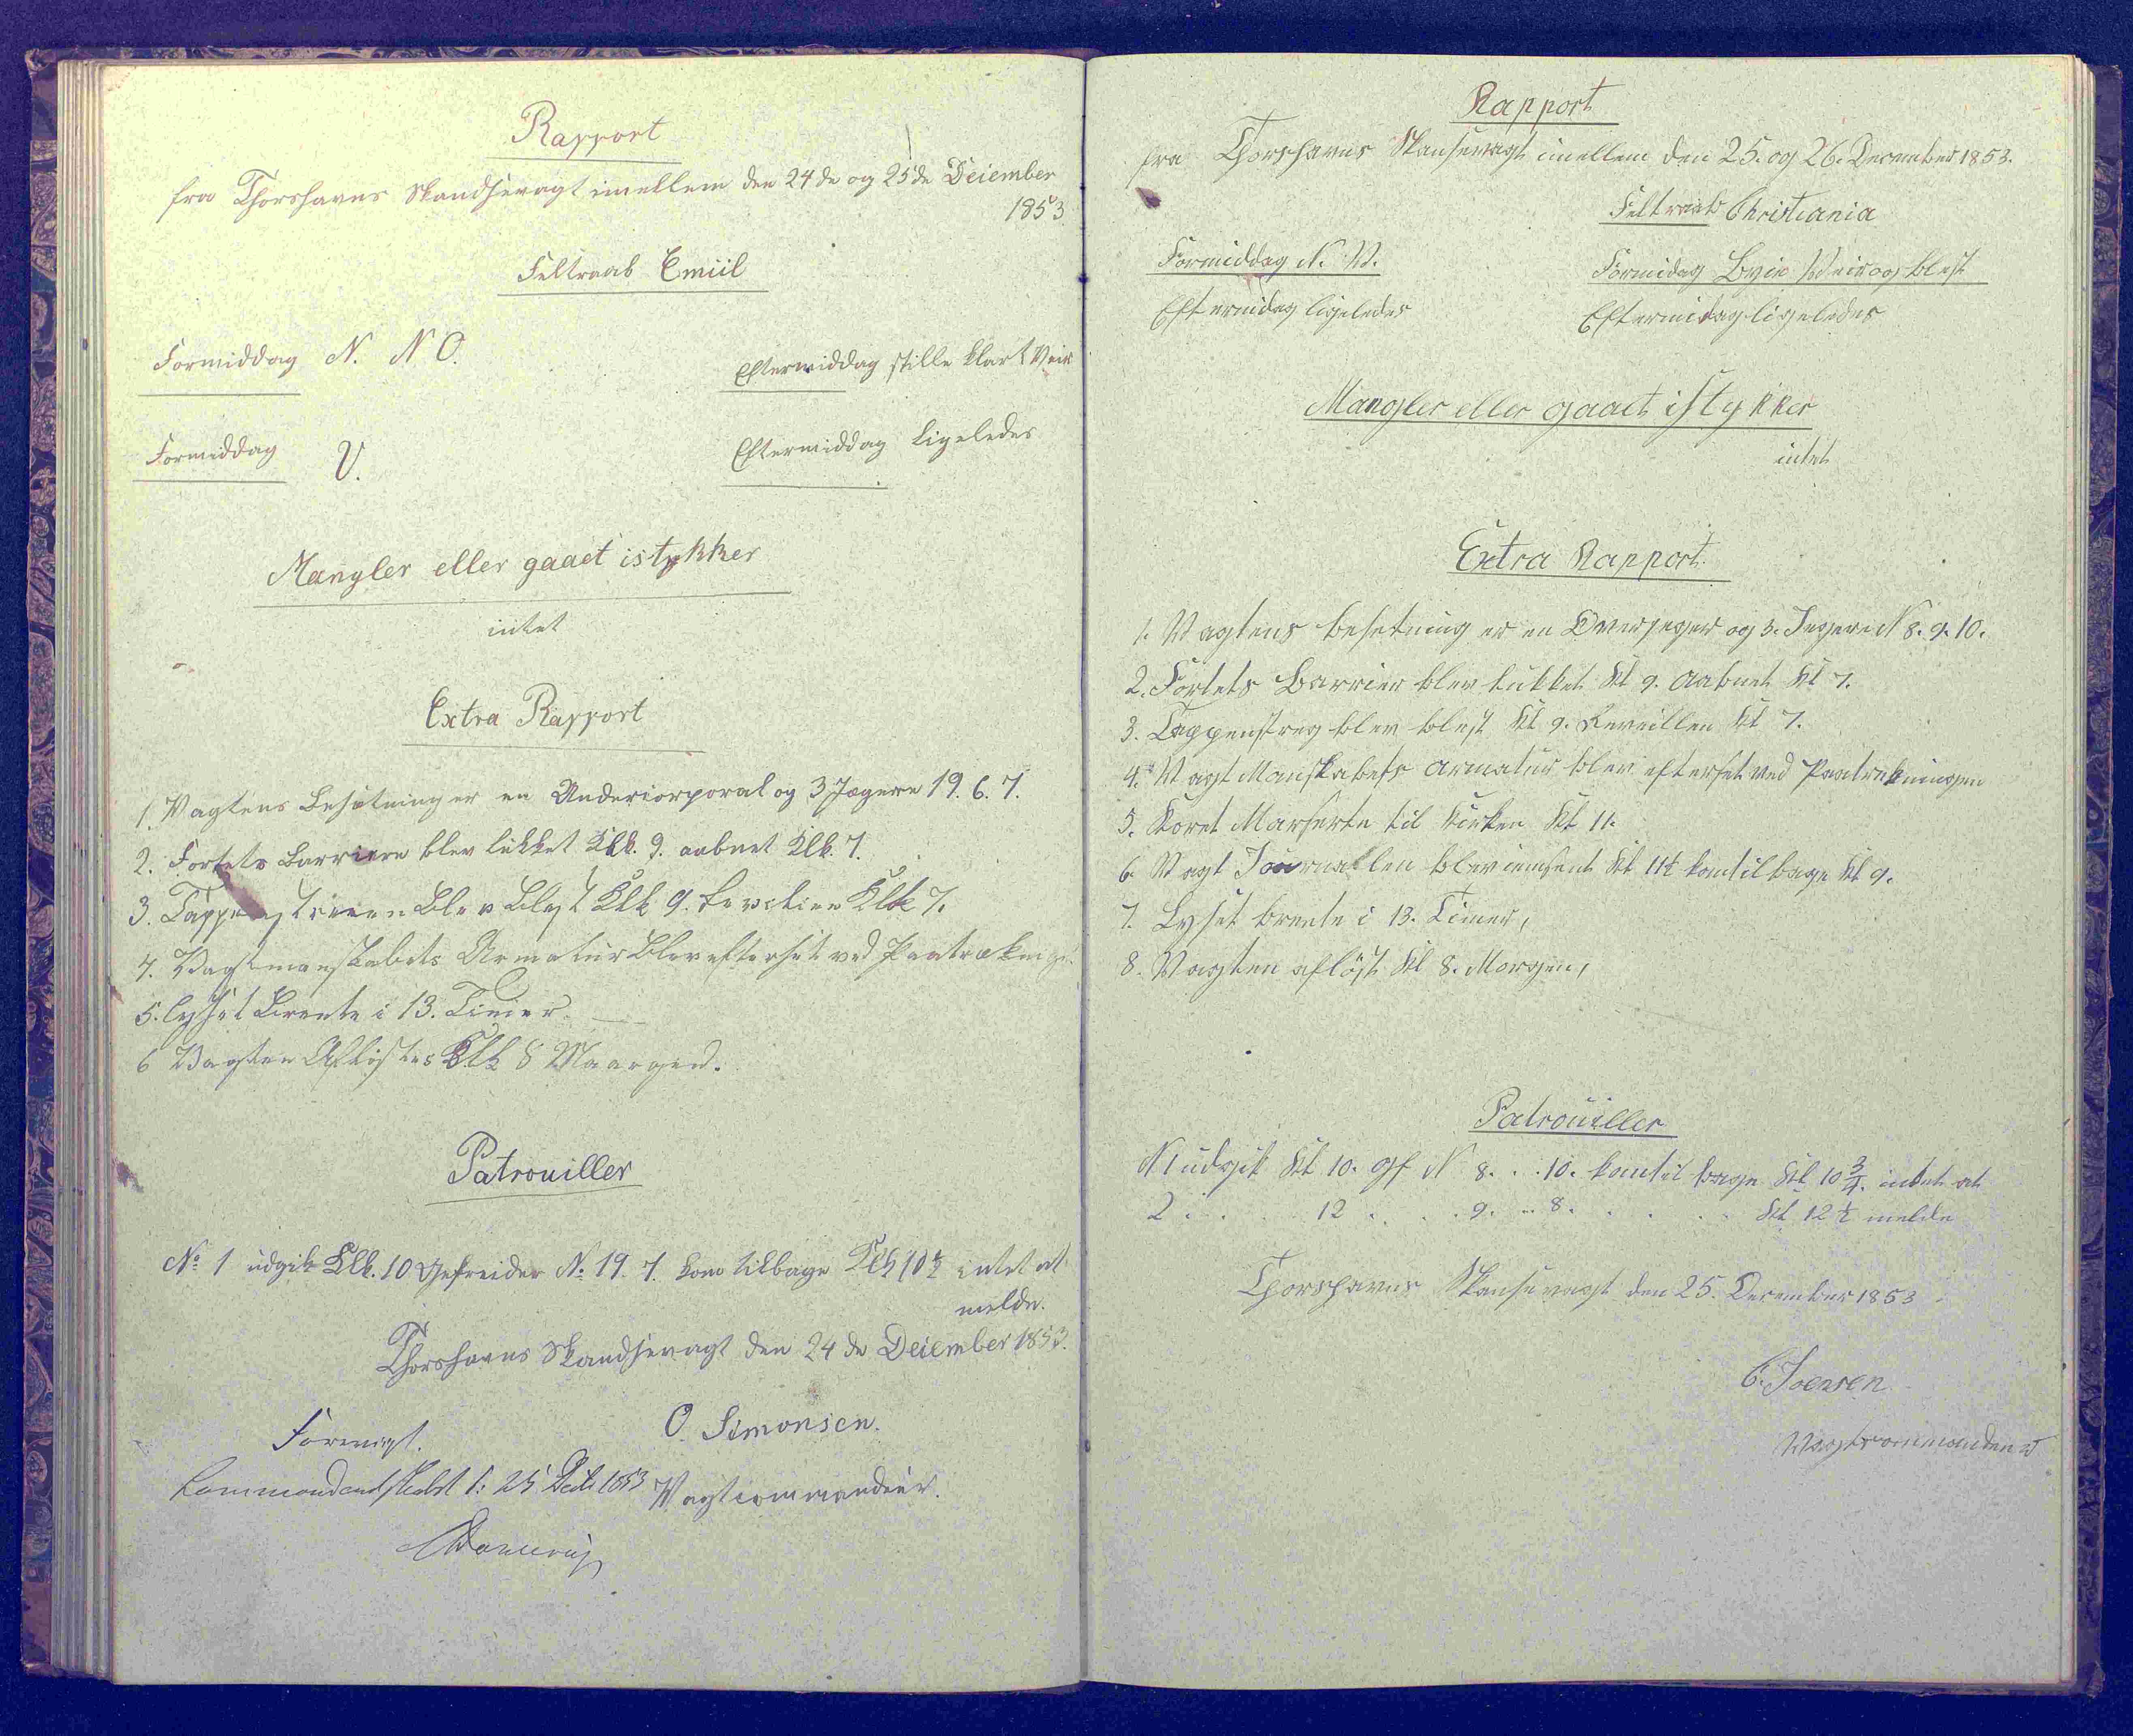 Rapport
fra Thorshavns Skandsevagt imellem den 24de og 25de Deiember
1853
Feltraab Emiil
Formiddag N. N O.
Eftermiddag stille klart Veir
Formiddag V.
Eftermiddag Ligeledes
Mangler eller gaaet istykker
intet
Extra Rapport
1. Vagtens Besætning er en Underiorporal og 3 Jægere 19. 6. 7.
2. Fortets Barriere blev lukket Klk. 9. aabnet Klk. 7.
3. Blev Blest Klk 9. Klk 7.
4. Vagtmanskabets Armatur Blev efterset ved
5. Lyset Brente i 13. Timer.
6 Vagten Afløstes Klk 8 Maargen.
Patrouiller
No. 1 udgik Klk. 10 Gefreider No. 19. 7. kom tilbage Klk 10½ intet at
melde.
Thorshavns Skandsevagt den 24 de Deiember 1853.
O. Simonsen.
Vagtiommandeur.
Forevigt.
25 1853
Rapport
fra Thorshavns Skansevagt imellem den 25. og 26. December 1853.
Feltraab Christiania
Formiddag N. V.
Formidag Byie Veir og blest
Eftermidag ligeledes
Eftermidag ligeledes
Mangler eller gaaet istykker
intet
Extra Rapport.
1. Vagtens besetning er en Overjeger og 3. Jegere N 8. 9. 10.
2. Fortets Barrier blev lukket Kl 9. aabnet Kl 7.
3. Tappenstreg blev blest Kl 9. Reveillen Kl 7.
4. Vagt Manskabets armatur blev efterset ved Paatrekningen
5. Koret Marserte til Kirken Kl 11.
6. Vagt Journallen blev innsent Kl 11½ kom tilbage Kl 9.
7. Lyset brente i 13. Timer,
8. Vagten afløst Kl 8. Morgen,
Patrouiller
N 1 udgik Kl 10. Gf N 8. . . 10. kom tilbage Kl 10¾. intet at
2 . . . 12 . . . 9. .. 8. . . . . Kl 12½ melde
Thorshavns Skansevagt den 25. December 1853
C. Joensen
Vagtcommander